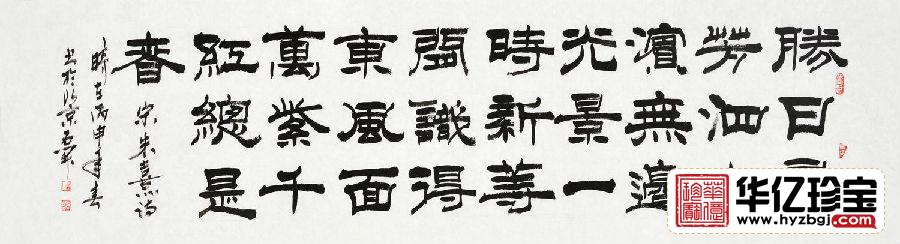 勝日
芳泗
濱無邊
光景一
時新等
閒識得
東風面
萬紫千
紅總是
春 宋朱熹詩
時在丙申年春
书於北京
华亿珍宝
www.hyzbgj.com